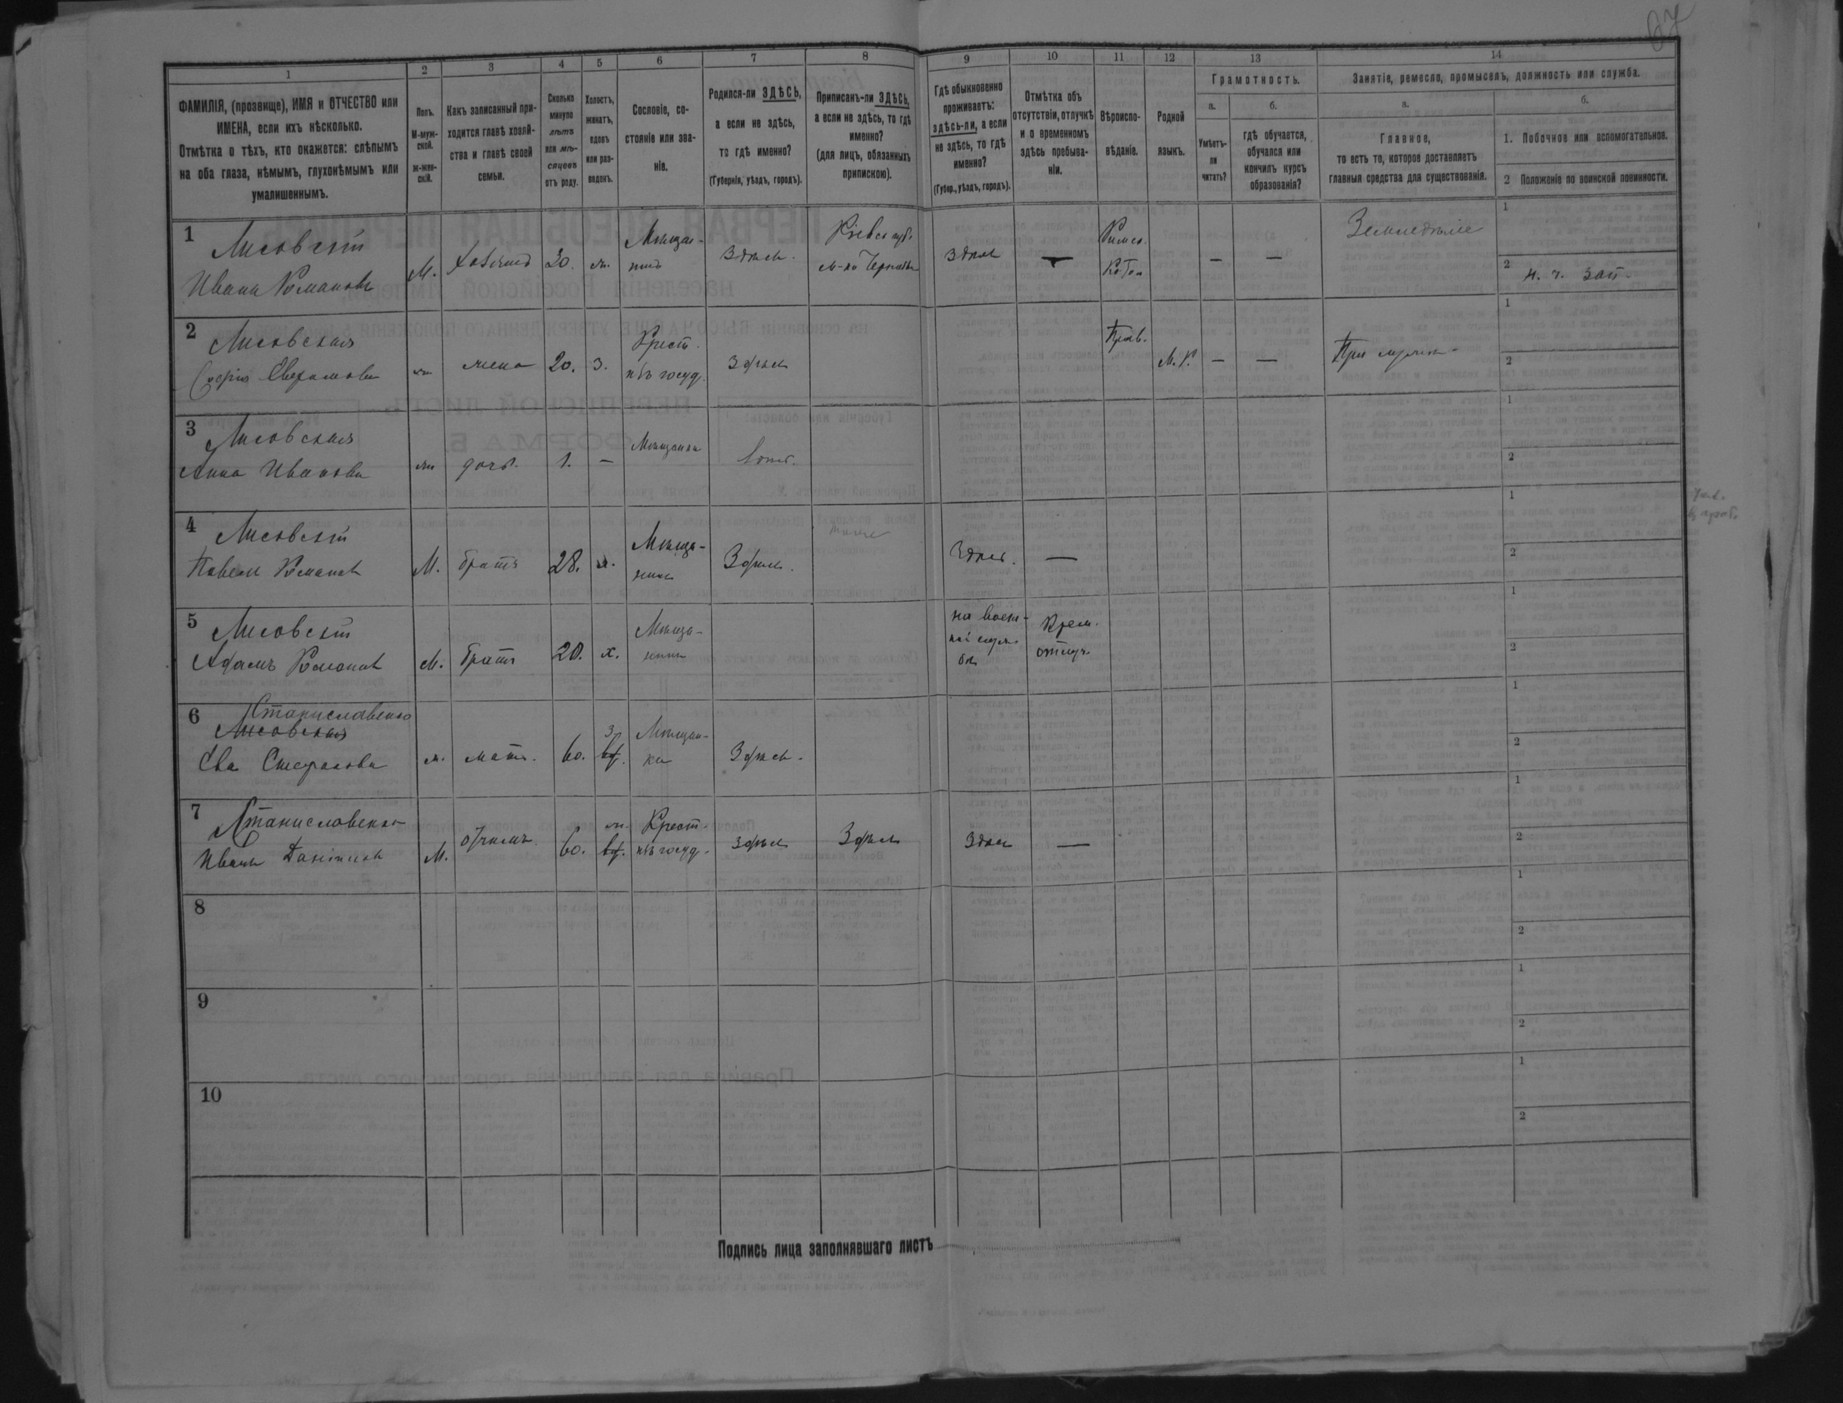 67
1
2
3
4
5
6
7
8
9
10
11
12
13
14
ФАМИЛІЯ, (прозвище), ИМЯ и ОТЧЕСТВО или
ИМЕНА, если ихъ нѣсколько.
Отмѣтка о тѣхъ, кто окажется: слѣпымъ
на оба глаза, нѣмымъ, глухонѣмымъ или
умалишеннымъ.
Полъ.
М-муж-
ской.
Ж-жен-
скій.
Какъ записанный при-
ходится главѣ хозяй-
ства и главѣ своей
семьи.
Сколько
минуло
лѣтъ
или мѣ-
сяцевъ
отъ роду.
Холостъ,
женатъ,
вдовъ
или раз-
веденъ.
Сословіе, со-
стояніе или зва-
ніе.
Родился-ли ЗДѢСЬ,
а если не здѣсь,
то гдѣ именно?
(Губернія, уѣздъ, городъ).
Приписанъ-ли ЗДѢСЬ,
а если не здѣсь, то гдѣ
именно?
(для лицъ, обязанныхъ
припискою).
Гдѣ обыкновенно
проживаетъ:
здѣсь-ли, а если
не здѣсь, то гдѣ
именно?
(Губер., уѣздъ, городъ).
Отмѣтка объ
отсутствіи, отлучкѣ
и о временномъ
здѣсь пребыва-
ніи.
Вѣроиспо-
вѣданіе.
Родной
языкъ.
Грамотность.
а.
Умѣетъ-
ли
читать?
б.
гдѣ обучается,
обучался или
кончилъ курсъ
образованія?
Занятіе, ремесло, промыселъ, должность или служба.
а.
Главное,
то есть то, которое доставляетъ
главныя средства для существованія.
б.
1. Побочное или вспомогательное.
2 Положеніе по воинской повинности.
1
Лисовскій
Иванъ Романовъ
М.
хозяинъ
20.
ж.
Мѣщан-
инъ
Здѣсь.
Кіевск губ.
м-ко
Здѣсь
—
Римск.
Катол
—
—
Земледѣліе
1
2
н. ч. зап.
2
Лисовская
ж
жена
20.
з.
Крест.
изъ госуд.
Здѣсь
Прав.
М.Р.
—
—
При мужѣ
1
2
3
Лисовская
Анна Иванова
ж
дочь.
1.
—
Мѣщанка
1
2
4
Лисовскій
Павелъ Романовъ
М.
братъ
28.
х.
Мѣща-
нинъ
Здѣсь.
тоже
Здѣсь.
—
1
2
5
Лисовскій
Адамъ Романовъ
М.
братъ
20.
х.
Мѣща-
нинъ
на воен-
ной служ-
бѣ
Врем.
отлуч.
1
2
6
Станиславенко
Лисовская
Ева Стефанова
ж.
мать.
60.
з
вд.
Мѣщан-
ка
Здѣсь.
1
2
7
Станиславенко
Иванъ
М.
отчимъ
60.
ж.
вд.
Крест.
изъ госуд.
Здѣсь
Здѣсь
Здѣсь
—
1
2
8
1
2
9
1
2
10
1
2
Подпись лица заполнявшаго листъ